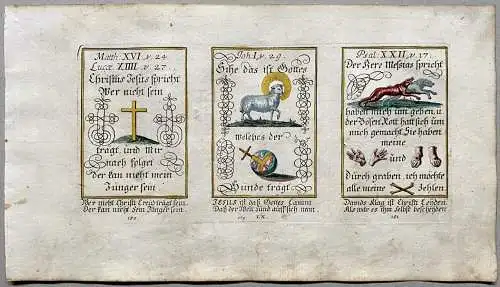 Matth: XVI, v. 24.
Lucæ XIIII, v. 27.
Christus Jesus spricht
Wer nicht sein
tragt, und Mir
nach folget
der kan nicht mein
Jünger sein.
Wer nicht Christi Creutz trägt sein
Der kan nicht Sein Jünger sein.
Joh. I, v. 29.
Sihe das ist Gottes
welches der
Sünde trägt
JESUS ist daß Gottes Lamm
Daß der Welt Sünd auff sich nam
Psal: XXII, v. 17.
Der Herr Messias spricht
haben mich um geben, u.
der Bösen Rott hat sich um
mich gemacht Sie haben
meine
und
durch graben, ich möchte
alle meine
Zehlen.
Davids Klag ist Christi Leyden
Als wär es ihm selbst bescheyden